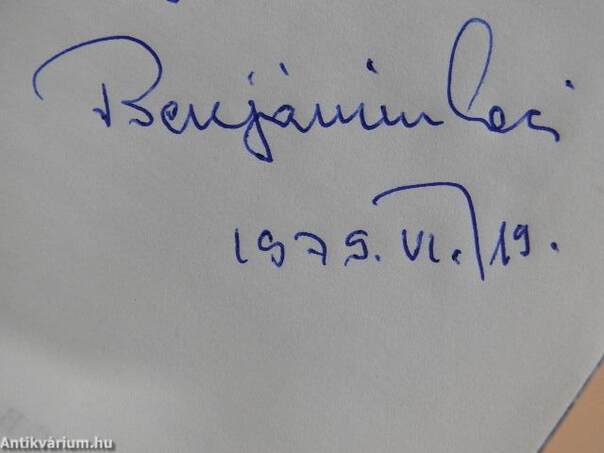 Benjámin Laci
1979. VI. 19.
Antikvárium.hu